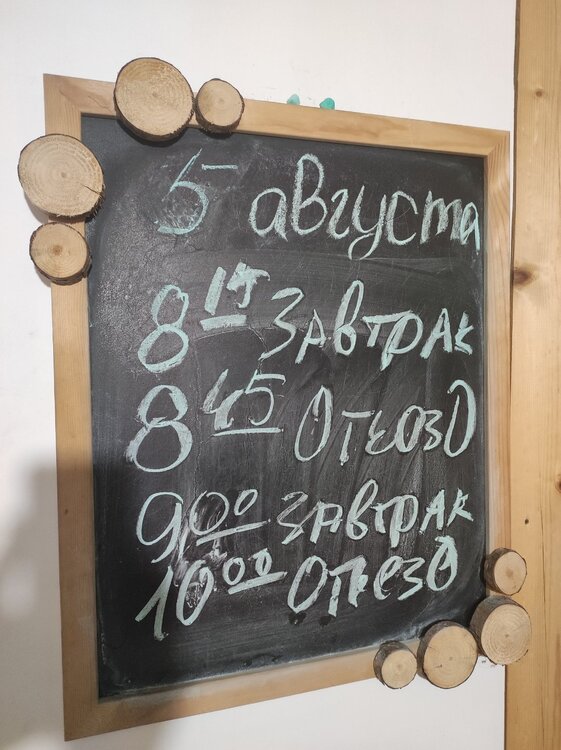 5 августа
8 15 Завтрак
8 45 Отъезд
9 00 Завтрак
10 00 Отъезд